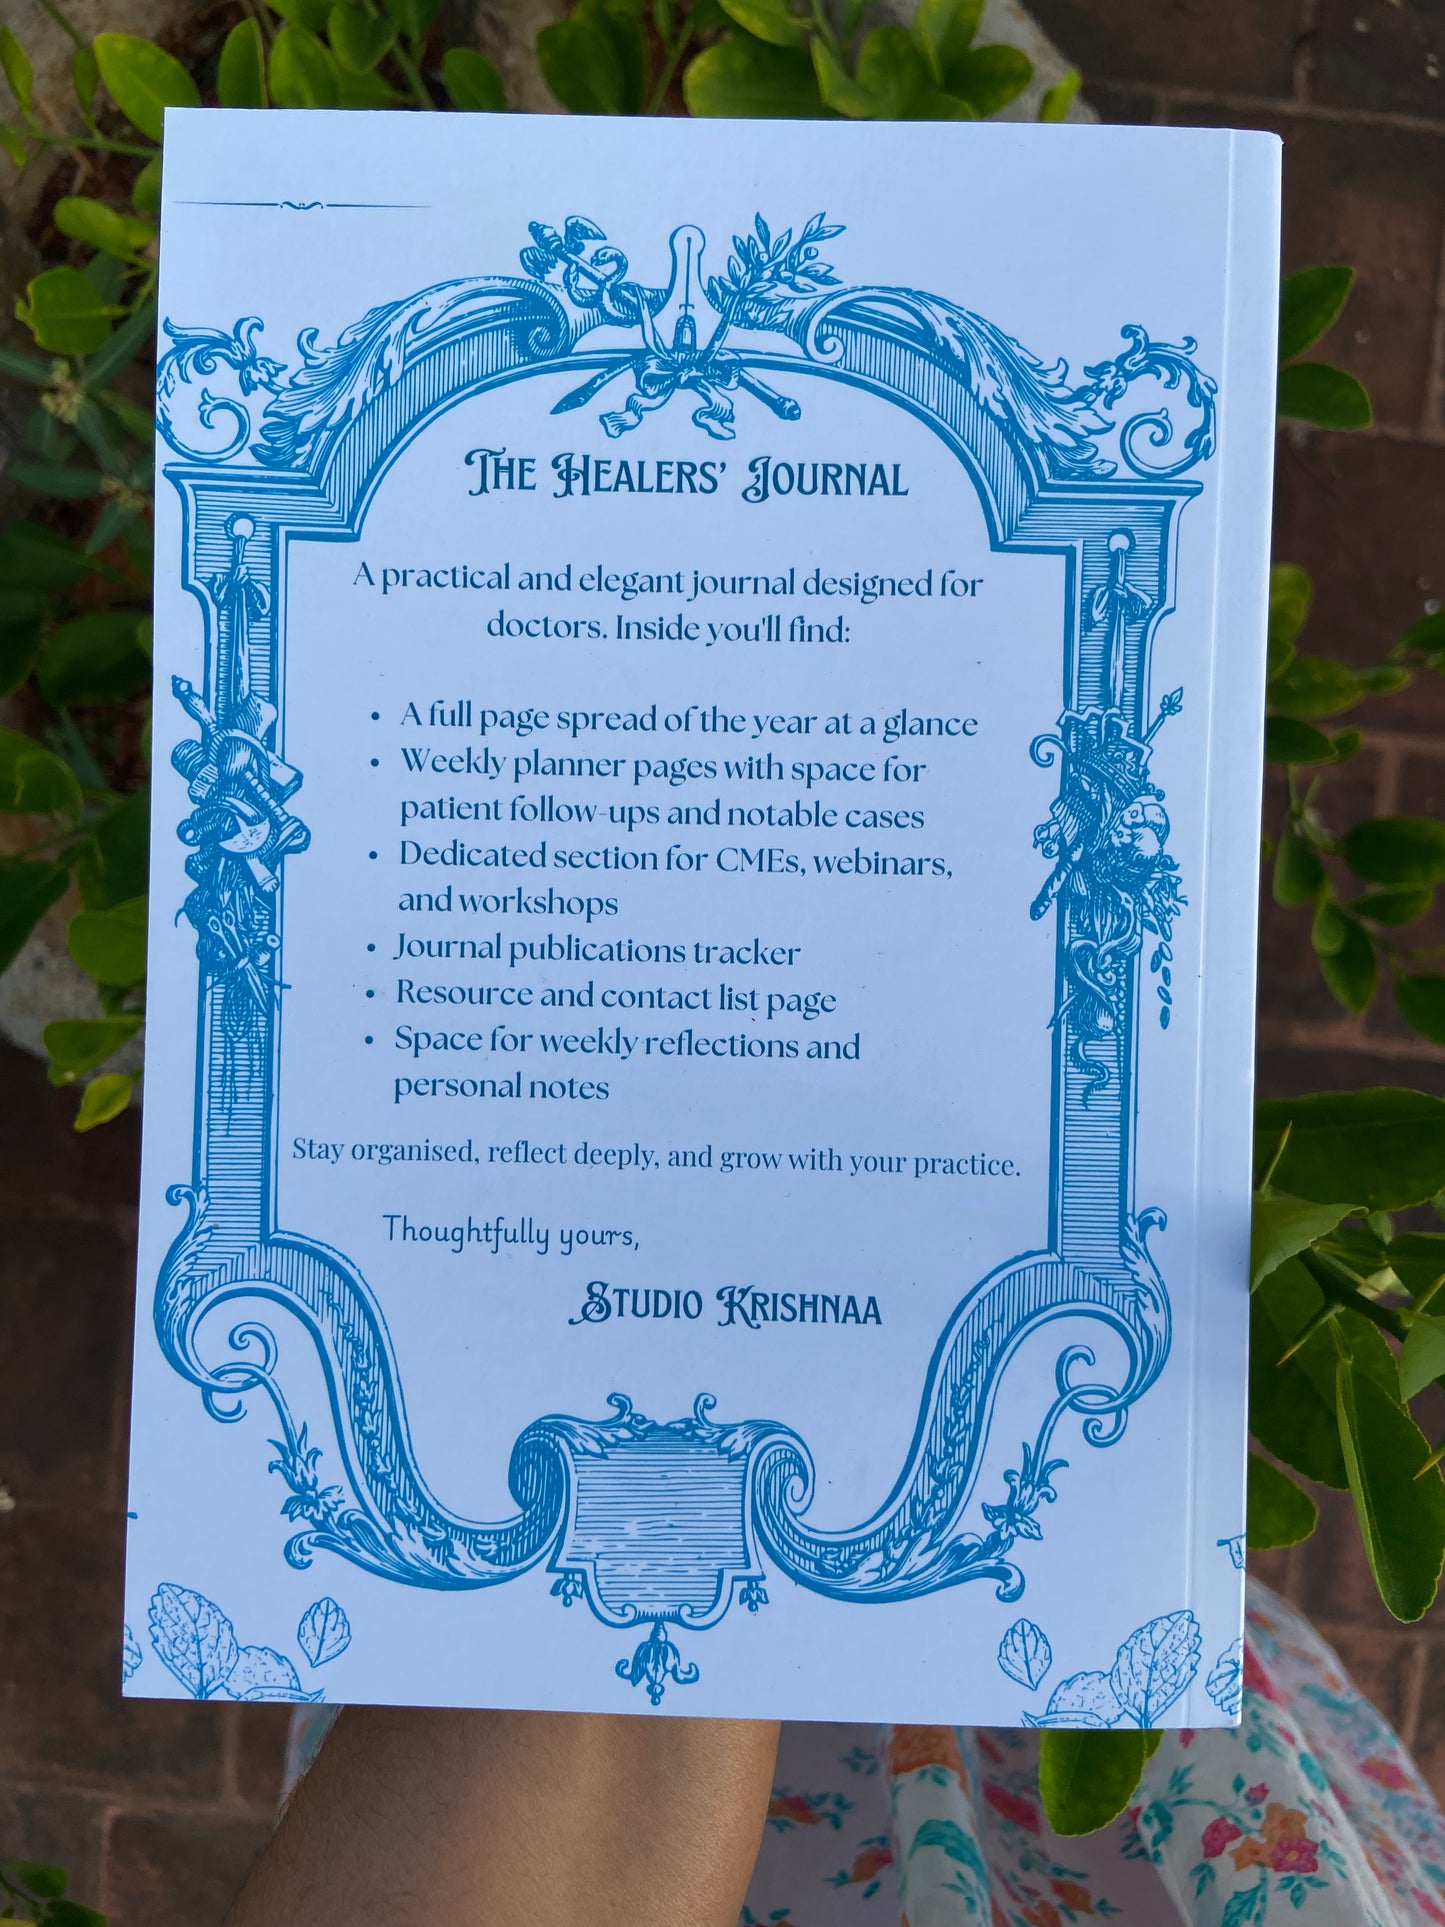 The Healers' Journal
A practical and elegant journal designed for
doctors. Inside you'll find:
• A full page spread of the year at a glance
• Weekly planner pages with space for
patient follow-ups and notable cases
• Dedicated section for CMEs, webinars,
and workshops
• Journal publications tracker
• Resource and contact list page
• Space for weekly reflections and
personal notes
Stay organised, reflect deeply, and grow with your practice.
Thoughtfully yours,
Studio Krishnaa